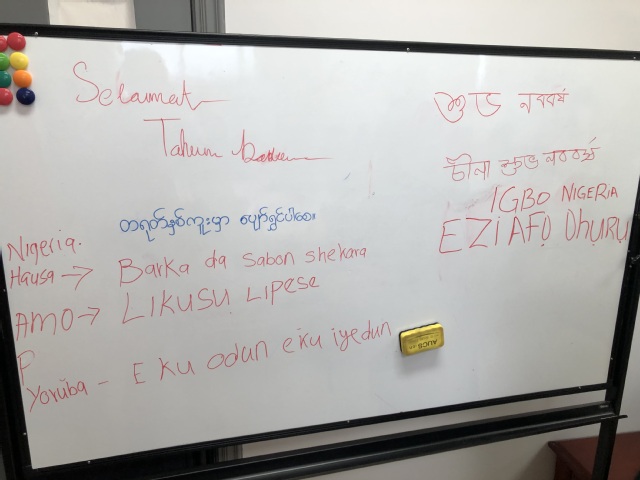 Selamat
Tahun baru
শুভ নববর্ষ
চীনা শুভ নববর্ষ
တရုတ်နှစ်ကူးမှာ ပျော်ရွှင်ပါစေ။
IGBO NIGERIA
EZI AFỌ ỌHỤRỤ
Nigeria.
Hausa → Barka da sabon shekara
AMO → LIKUSU LIPESE
F
Yoruba - E KU odun eku iyedun
AUCS